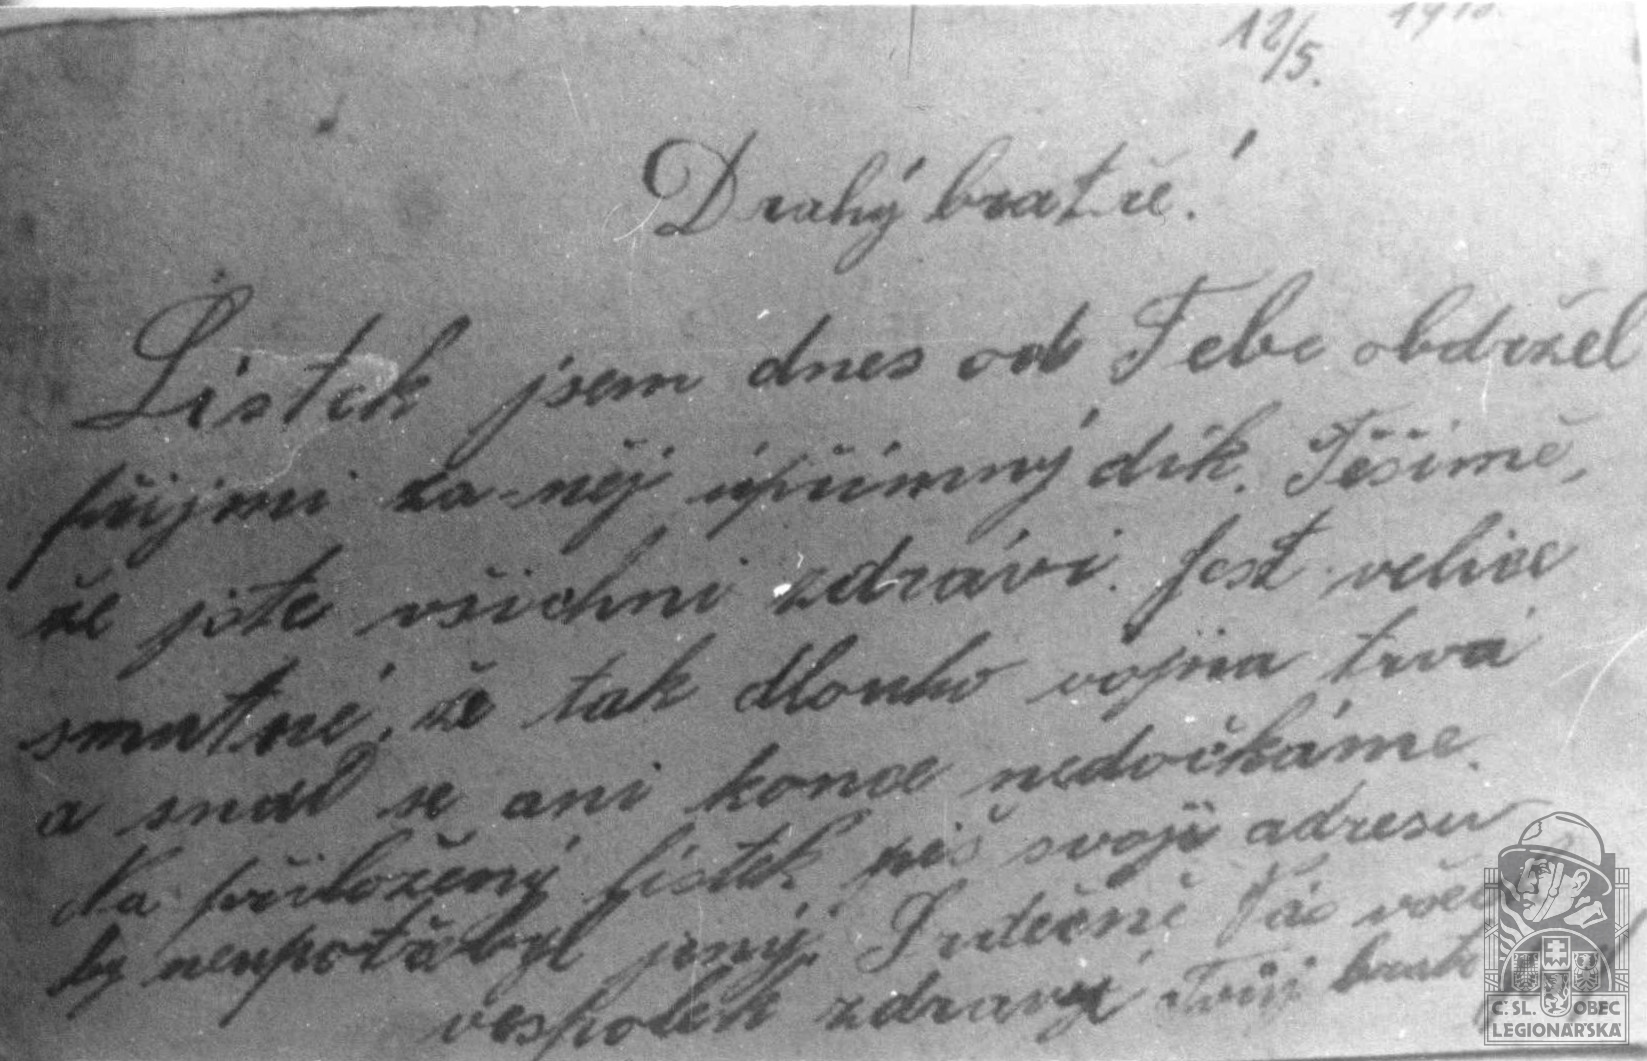 12/5. 1918.
Drahý bratře!
Lístek jsem dnes od Tebe obdržel
přijmi za-něj úpřímný dík. Těšímě,
že jste všichni zdrávi. Jest velice
smutné, že tak dlouho vojna trvá
a snad se ani konce nedočkáme.
Na přiložený lístek piš svoji adresu
by neupotřebyl jiný. Srdečně Vás
vespolek zdravý Tvůj bratr
Č. SL. OBEC
LEGIONÁŘSKÁ